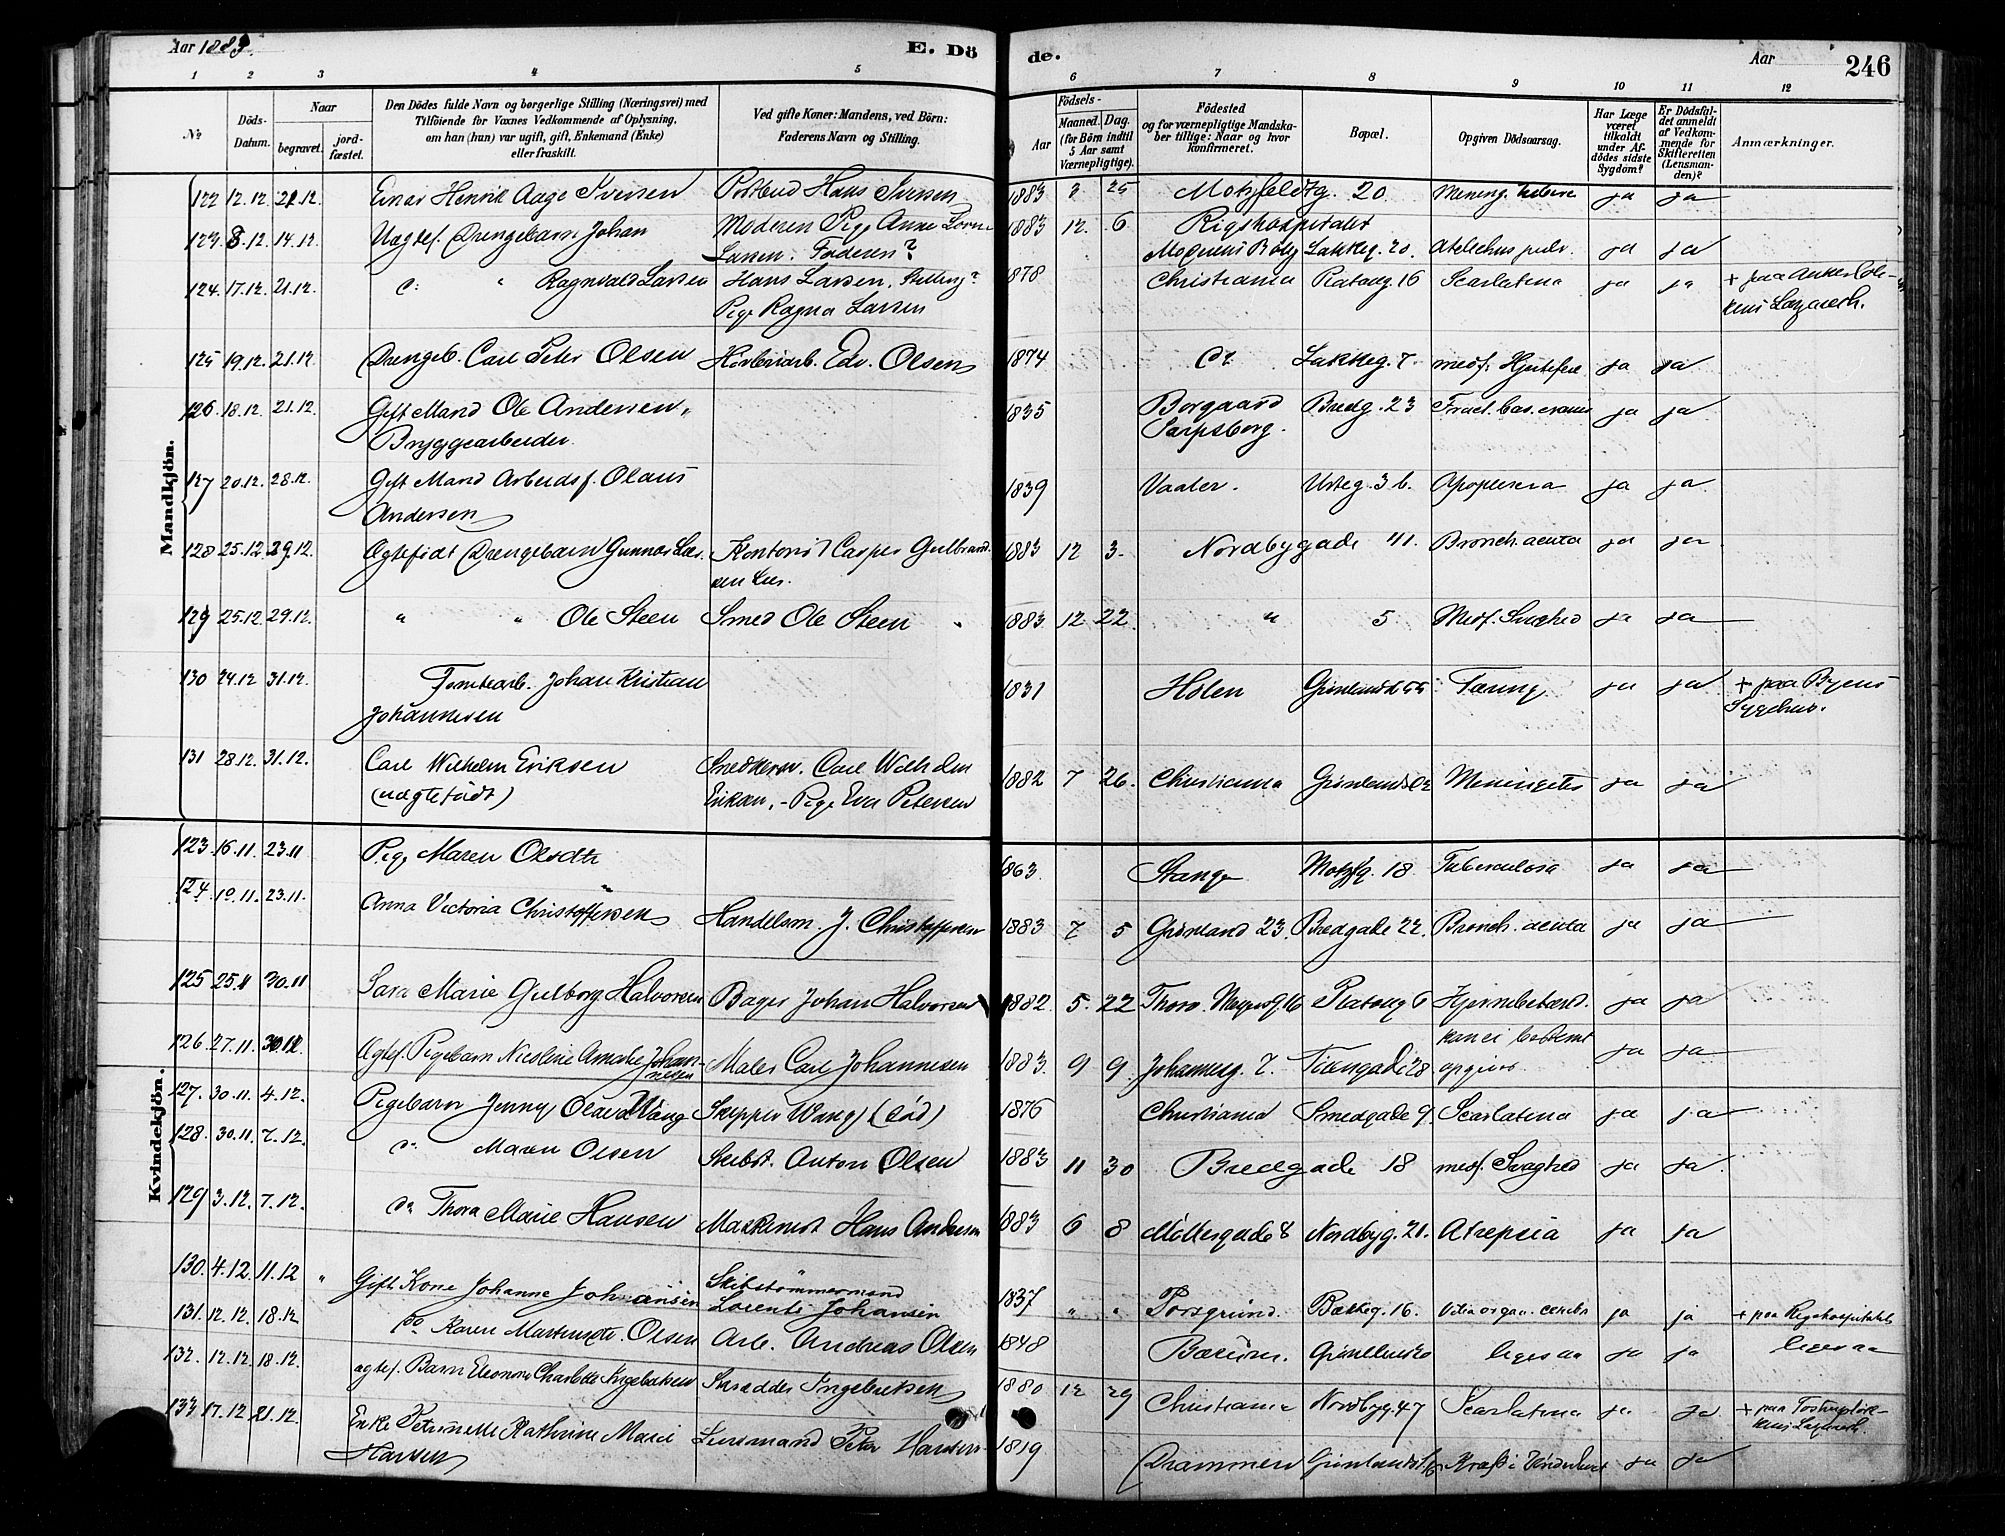 Aar 1883.
E. Dö
de.
Aar
246
1 2 3 4 5
6 7 8 9 10 11 12
No
Döds-Datum.
Naar
begravet.
jord-fæstet.
Den Dödes fulde Navn og borgerlige Stilling (Næringsvei) med
Tilföiende for Voxnes Vedkommende af Oplysning,
om han (hun) var ugift, gift, Enkemand (Enke)
eller fraskilt.
Ved gifte Koner: Mandens, ved Börn:
Faderens Navn og Stilling.
Födsels-
Aar
Maaned. Dag.
(for Börn indtil
5 Aar samt
Værnepligtige).
Födested
og for værnepligtige Mandska-
ber tillige: Naar og hvor
konfirmeret.
Bopæl.
Opgiven Dödsaarsag.
Har Læge
været
tilkaldt
under Af-
dödes sidste
Sygdom?
Er Dödsfal-
det anmeldt
af Vedkom-
mende for
Skifteretten
(Lensman-
den)?
Anmærkninger.
Mandkjön.
122 12.12. 21.12. Einar Henrik Aage Iversen Postbud Hans Iversen 1883 3 25 Motzfeldtg. 20 Mening. ja ja
123. 8.12. 14.12. Uægtef. Drengebarn Johan Moderen Pige Anne 1883 12. 6 Rigshospitalet
Larsen. Faderen? Moderens Bolig Lakkeg. 20. ja ja
124. 17.12. 21.12. do " Ragnvald Larsen Hans Larsen, Stilling? 1878 Christiania Platoug. 16 Scarlatina ja ja + paa Ankerløk-
Pige Ragna Larsen kens Lazareth.
125 19.12. 21.12. Drengeb. Carl Peter Olsen Edv. Olsen 1874 do Lakkeg. 7. medf. Hjertefeil ja ja
126 18.12. 21.12. Gift Mand Ole Andersen, 1835 Borgaard Bredg. 23 Fract. bas. cranii ja ja
Bryggearbeider. Sarpsborg.
127 20.12. 28.12. Gift Mand Arbeidsf. Olaus 1839 Vaaler. Urteg. 3 b. Apoplexia ja ja
Andersen
128 25.12. 29.12. Ægtefødt Drengebarn Gunnar Kontorist Casper Gulbrand- 1883 12 3. Nordbygade 41. Bronch. acuta ja ja
sen
129 25.12 29.12. " " Ole Steen Smed Ole Steen 1883 12 22 " 5 Medf. Svaghed ja ja
130 24.12 31.12. Tomtearb. Johan Kristian 1831 Holen Grønlandsl. 55 Tæring ja ja + paa Byens
Johannesen Sygehus.
131 28.12. 31.12. Carl Wilhelm Eriksen Snedkersv. Carl Wilhelm
(uægtefødt) Eriksen, - Pige Eva Petersen 1882 7 26. Christiania Meningitis ja ja
Kvindekjön.
123. 16.11. 23.11 Pige Maren Olsdtr 1863. Stange Motzfg. 18. Tuberculosa ja ja
124. 19.11. 23.11. Anna Victoria Christoffersen Handelsm. J. Christoffersen 1883 7 5 Grønland 23. Bredgade 22. Bronch. acuta ja ja
125 25.11 30.11 Sara Marie Gulborg Halvorsen Bager Johan Halvorsen 1882. 5. 22 Thorv. Meyersg. 16 Platoug 6 Hjernebetænd. ja ja
126. 27.11. 30.12. Ægtef. Pigebarn Nicoline Amalie Johan- Maler Carl Johannesen 1883. 9 9. Johannesg. 7. 28 kan ei bestemt ja ja
nesen opgives
127. 30.11. 4.12. Pigebarn Jenny Olava Wang Skipper Wang (død) 1876 Christiania Smedgade 9. Scarlatina ja ja
128. 30.11. 7.12. do Maren Olsen Skibst. Anton Olsen 1883 11 30 Bredgade 18 medf. Svaghed ja ja
129 3.12. 7.12. do Thora Marie Hansen Maskenist Hans Andersen 1883 6 8 Møllergade 8 Nordbyg. 21. Atrepsia ja ja
130. 4.12. 11.12 " Gift Kone Johanne Johansen Skibstømmermand
Lorents Johansen 1837 " " Porsgrund. Bakkeg. 16. Vitia organ. cerebri ja ja + paa Rigshospitalet
131. 12.12. 18.12 do Karen Martinsdtr. Olsen Arb. Andreas Olsen 1848 Bærum. ligesaa ja ja ligesaa
132. 12.12. 18.12. ægtef. Barn Eleonora Charlotte Ingebretsen Skrædder Ingebretsen 1880 12 29 Christiania Nordbyg. 47 Scarlatina ja ja + paa
Lazareth.
133 17.12 21.12. Enke Petronelle Kathrine Marie Lensmand Peter Hansen 1819 Drammen Kræft i Underlivet ja ja
Hansen